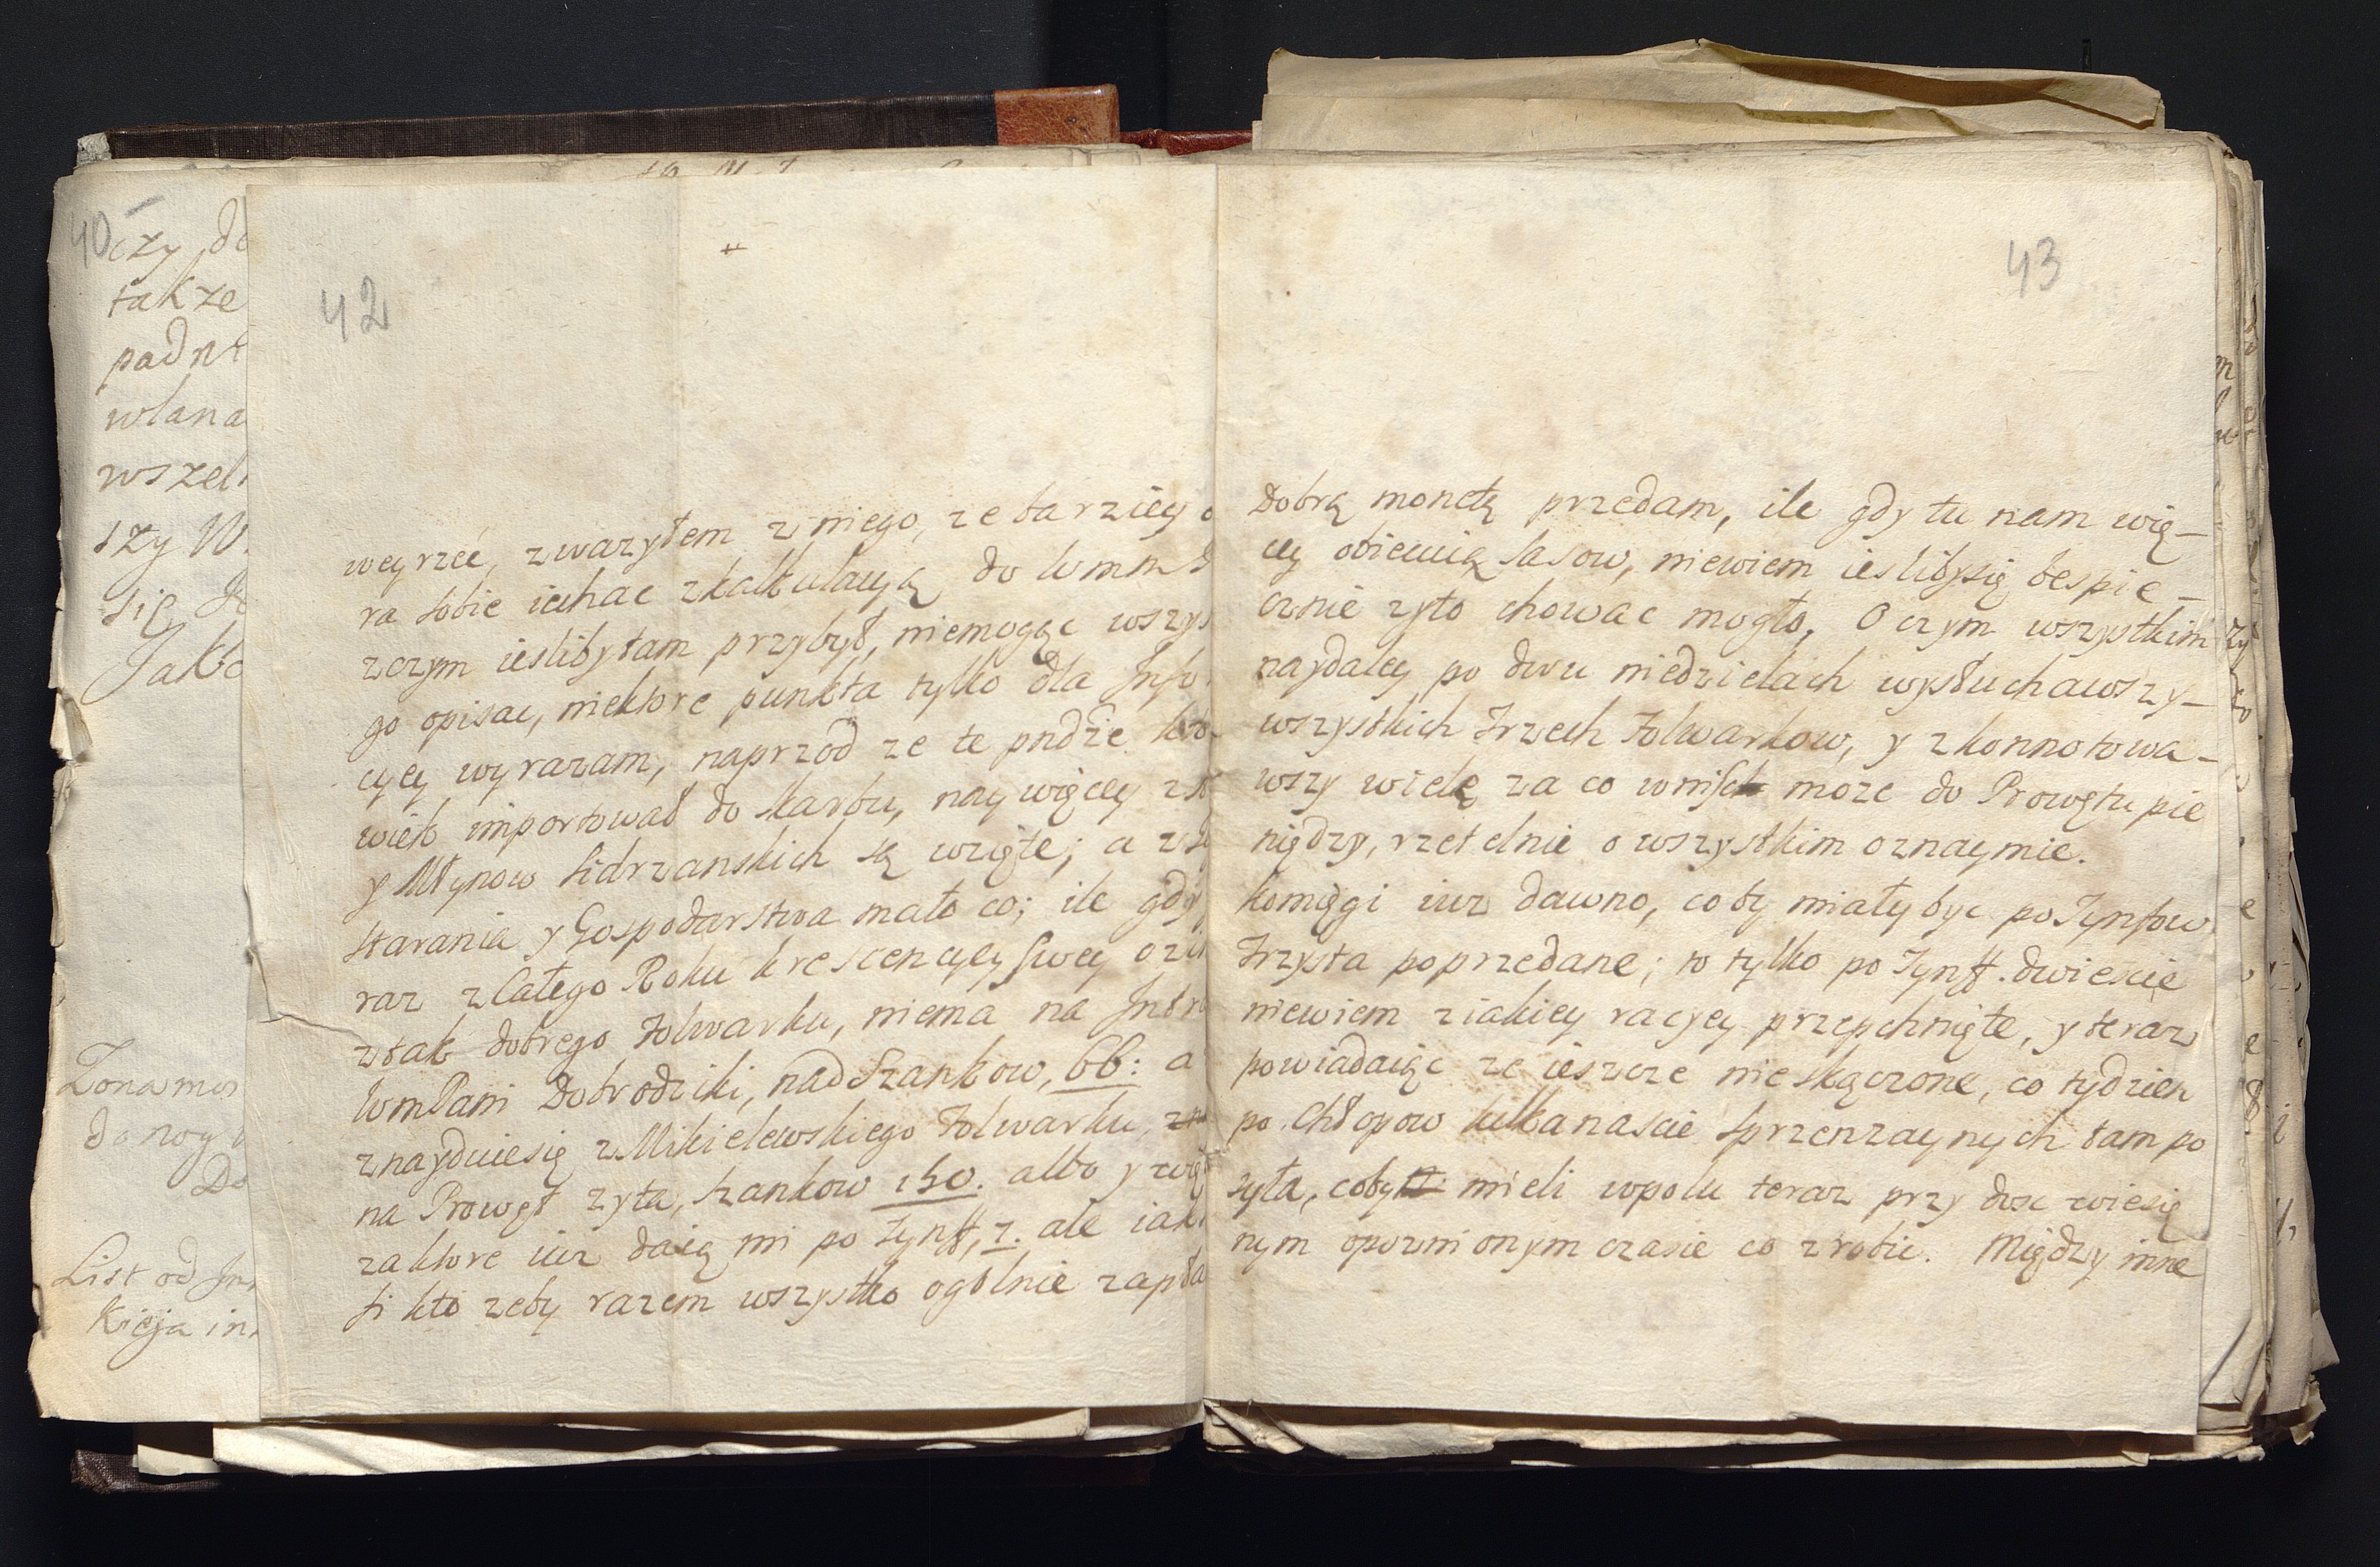 40
czy
także
padnt
wlana
wszel
szy W.
się
Jako
Zonamos
do nog
Do
List od
Kieja in
42
weyrzeć, zwazyłem z niego, ze barziey
ra sobie iechac zkalkulacyą do WmM
zczym iesliby tam przybył, niemogąc wszys
go opisac, niektore punkta tylko dla Info
cyey wyrazam, naprzod ze te pndze kto
wiek importował do skarbu, naywięcey z
y Młynow Sidrzanskich są wzięte; a z
starania y Gospodarstwa mało co; ile gdy
raz z całego Roku krescencyey swey
z tak dobrego Folwarku, niema na Intr
WmPani Dobrodziki, nad Szankow, 66: a
znayduiesię z Mikielewskiego Folwarku,
na Prowęt zyta, szankow 150. albo y
za ktore iuz daią mi po tynff, 7. ale iak
si kto zeby razem wszystko ogolnie zapła
43
dobrą monetą przedam, ile gdy tu nam wię-
cey obiecuią Sasow, niewiem iesliby się bespie-
cznie zyto chowac mogło, O czym wszystkim
naydaley po dwu niedzielach wysłuchawszy-
wszystkich trzech Folwarkow, y zkonnotowa-
wszy wielę za co wnisc moze do Prowętu pie
niędzy, rzetelnie o wszystkim oznaymie.
komięgi iuz dawno, coby miały byc po Tynfow
trzysta poprzedane; to tylko po Tynff. dwiescie
niewiem z iakiey racyey przepchnięte, y teraz
powiadaiąc ze ieszcze nieskączone, co tydzien
po chłopow kilkanascie sprzenzaynych tam po
syła, coby mieli wpolu teraz przy dosc
nym opoznionym czasie co zrobic. Między inne